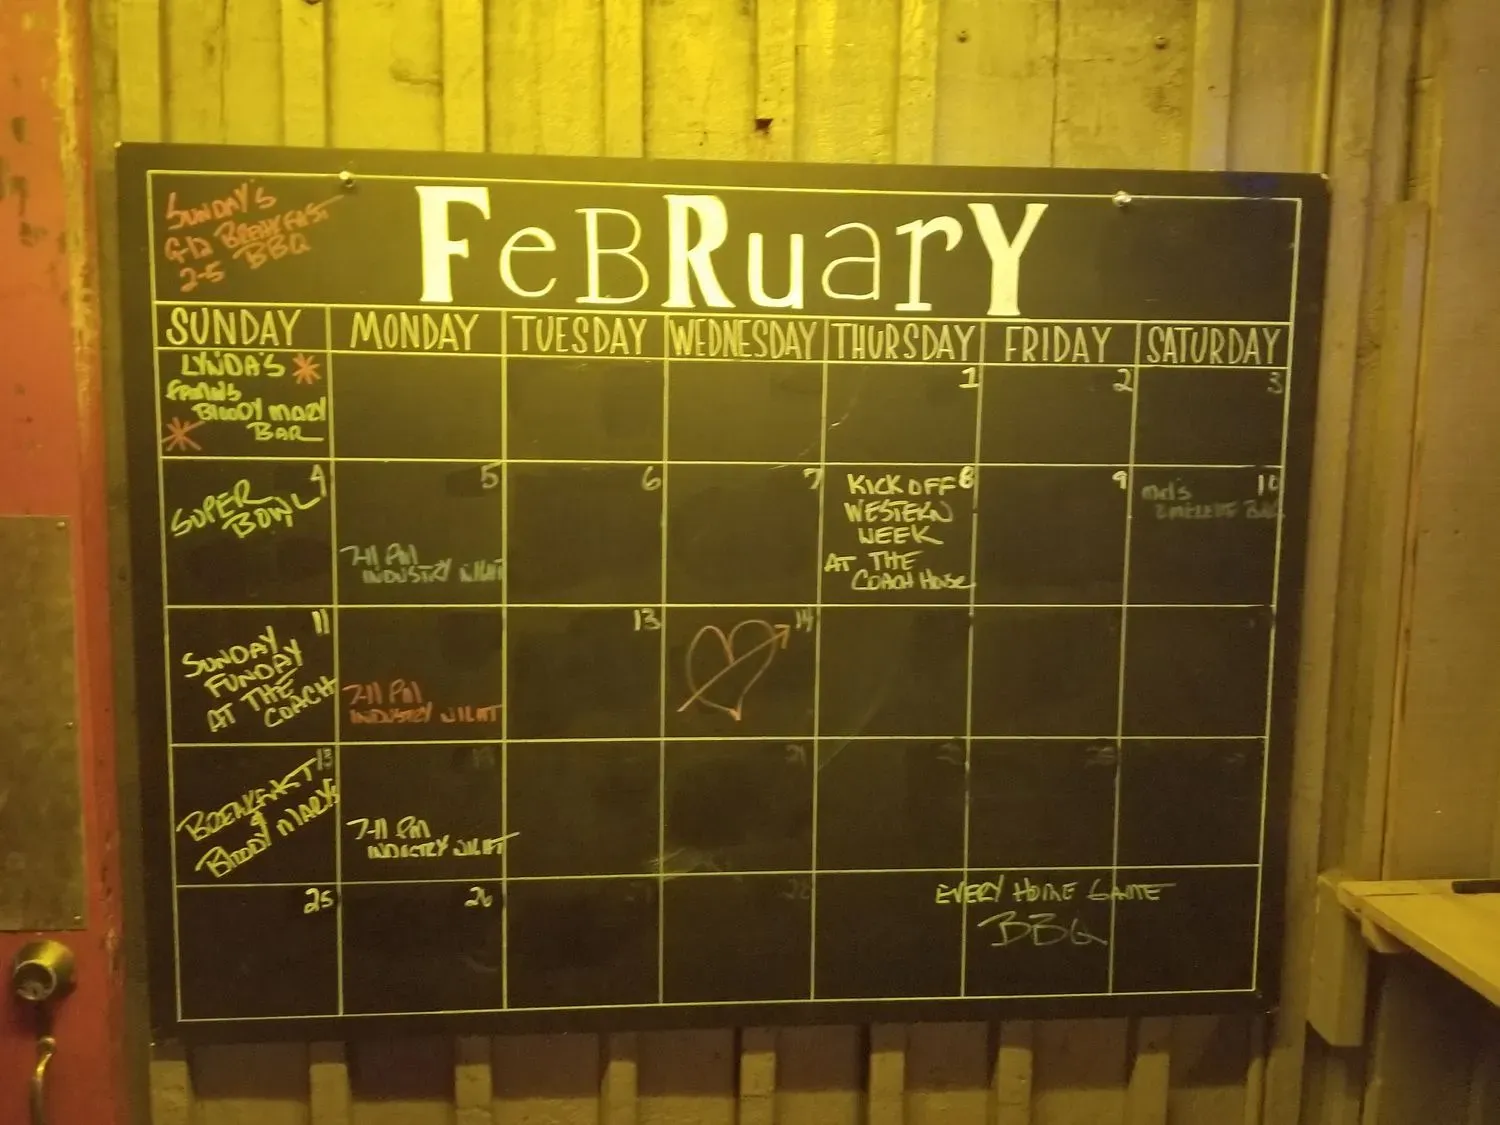 SUNDAY'S
BREAKFAST
2-5 BBQ
FeBRuarY
SUNDAY MONDAY TUESDAY WEDNESDAY THURSDAY FRIDAY SATURDAY
LYNDA'S
BLOODY MARY
BAR
1 2 3
4 5 6 7 8 9 10
SUPER
BOWL
7-11 PM
INDUSTRY NIGHT
KICK OFF
WESTERN
WEEK
AT THE
COACH HOUSE
11 13 14
SUNDAY
FUNDAY
AT THE
COACH
7-11 PM
INDUSTRY NIGHT
21
BREAKFAST
&
BLOODY MARYS
7-11 PM
INDUSTRY NIGHT
25 26 28
EVERY HOME GAME
BBQ